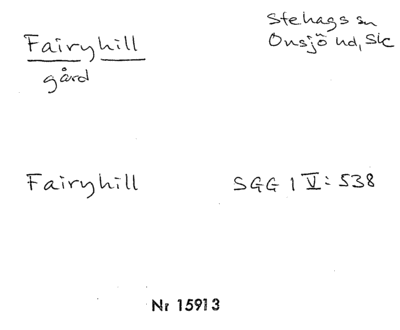 Fairyhill
gård
Stehags sn
Onsjö hd, Sk
Fairyhill
SGG 1 V: 538
Nr 15913